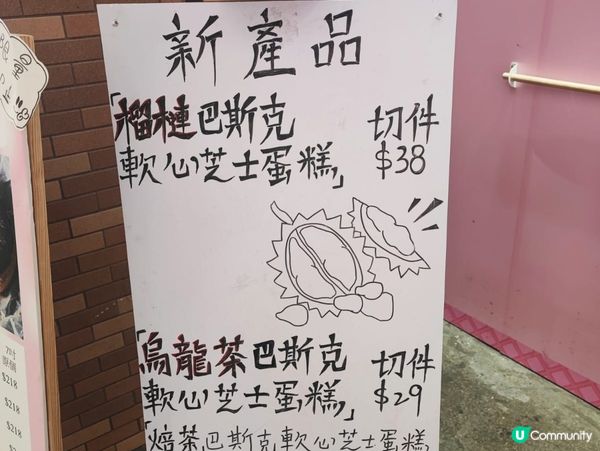 新產品
「榴槤巴斯克
軟心芝士蛋糕」
切件
$38
「烏龍茶巴斯克
軟心芝士蛋糕」
切件
$29
「焙茶巴斯克軟心芝士蛋糕
$218
$218
$218
$2
U Community